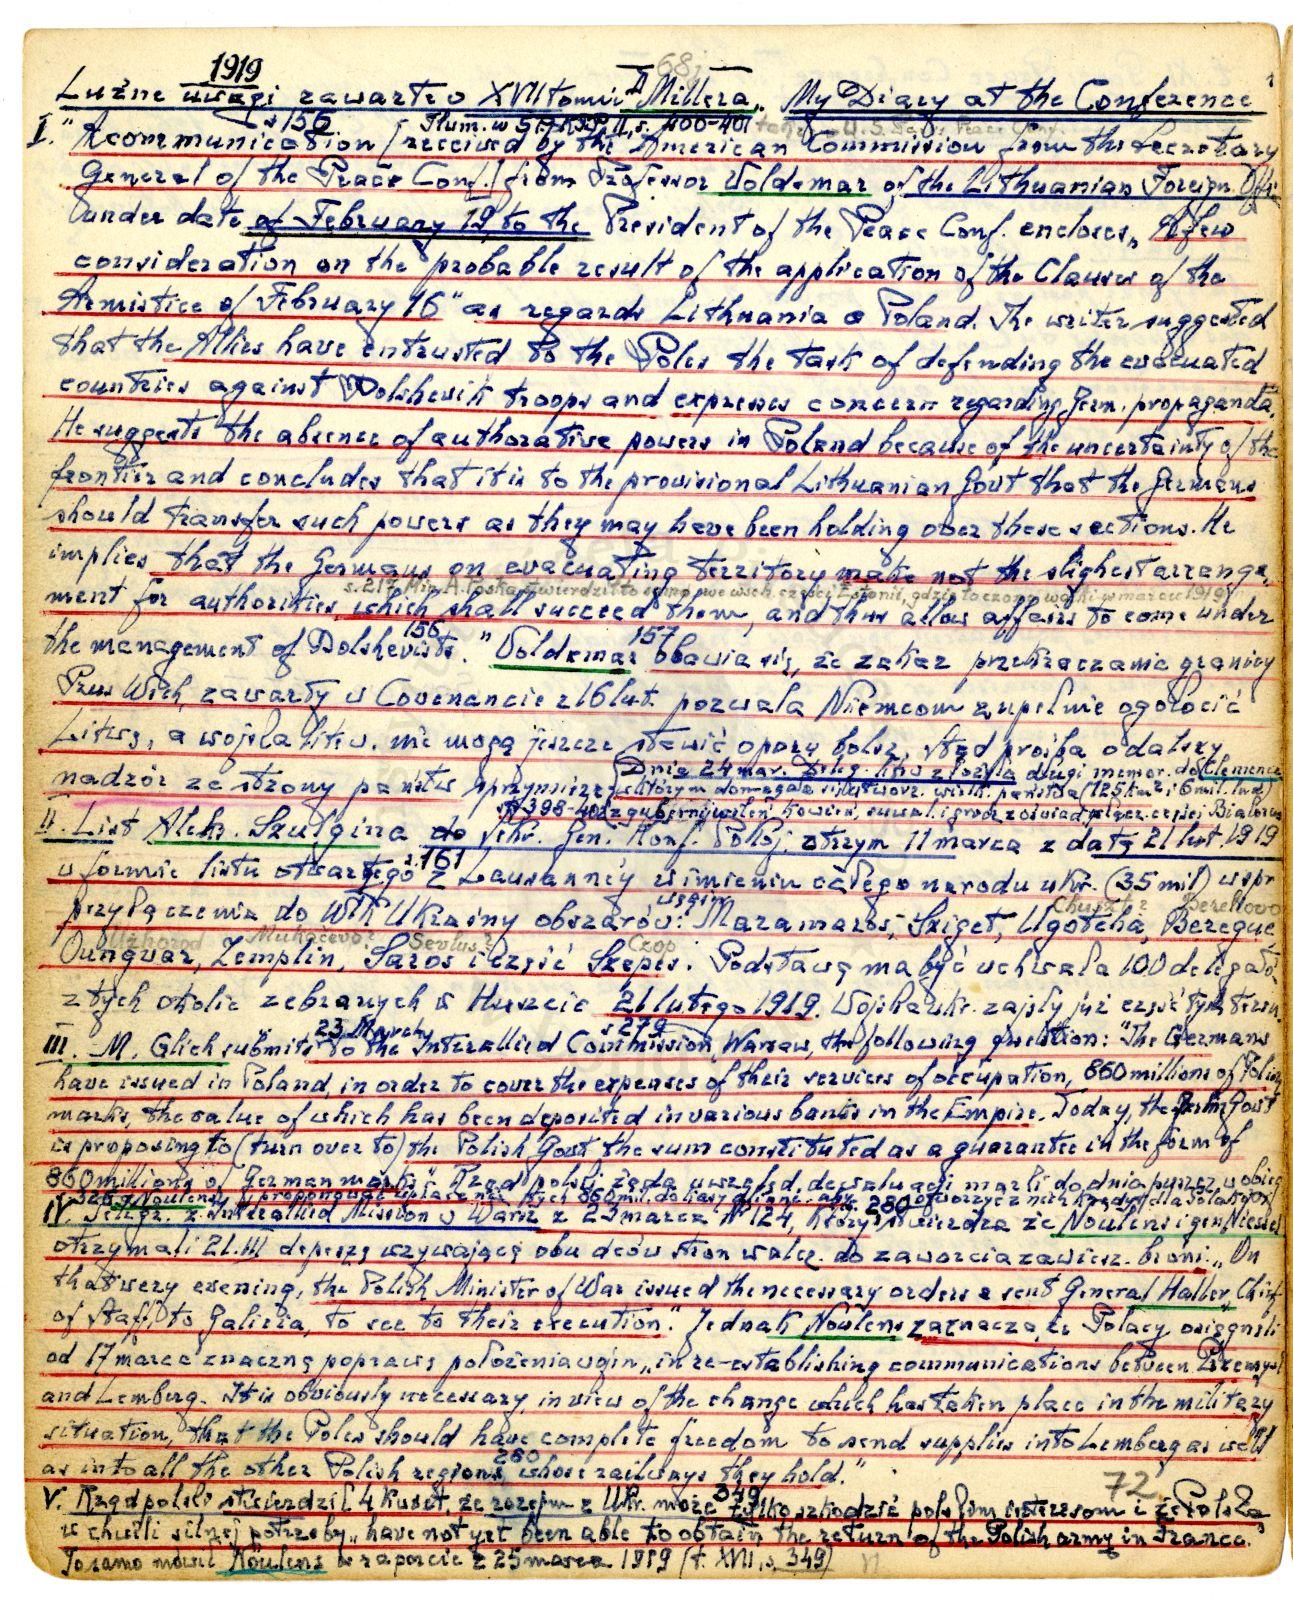 1919
Luźne uwagi zawarte w XVII tomie D. Millera „My Diary at the Conference
s 156 Tłum. w s. 400-401
I. "A communication [received by the American Commission from the Secretary
General of the Peace Conf.] from Professor Voldemar of the Lithuanian Foreign Offi
under date of February 19, to the President of the Peace Conf. encloses „A few
consideration on the probable result of the application of the Clauses of the
Armistice of February 16" as regards Lithuania a Poland. The writer suggested
that the Allies have entrusted to the Poles the task of defending the evacuated
countries against Bolshevik troops and expresses concern regarding Germ. propaganda.
He suggests the absence of authorative powers in Poland because of the uncertainty of the
frontier and concludes that it is to the provisional Lithuanian Govt that the Germans
should transfer such powers as they may have been holding over these sections. He
implies that the Germans on evacuating territory make not the slighest arrange
s. 217 Min. A. Poska stwierdził to samo we wsch. części Estonii, gdzie toczono walki w marcu 1919
ment for authorities which shall succeed them, and thus allow affairs to come under
156 157
the management of Bolshevists." Voldemar obawia się, że zakaz przekraczania granicy
Prus Wsch, zawarty w Covenancie z 16 lut. pozwala Niemcom zupełnie ogołocić
Litwę, a wojska litew. nie mogą jeszcze stawić oporu bolsz. Stąd prośba o dalszy
nadzór ze strony państw sprzymierz.
Dnia 24 mar. Deleg. litew złożyła długi memor. do Clemenc
II. List Aleks. Szulgina do sekr. Gen. Konf. Pokoj. otrzym 11 marca z datą 21 lut. 1919
s. 161
w formie listu otwartego z Lausanne'y w imieniu całego narodu ukr. (35 mil) w spr
przyłączenia do Wlk Ukrainy obszarów: Maramaros, Sziget, Ugotcha, Beregue
Użhorod Mukačevo? Sevlus? Czop Chuszt?
Oungvar, Zemplin, Saros i część Szepes. Podstawą ma być uchwała 100 delegató
z tych okolic zebranych w Huszcie 21 lutego 1919. Wojska ukr. zajęły już część tych teren.
23 March s 279
III. M. Glich submits to the Interallied Commission, Warsaw, the following question: "The Germans
have issued in Poland, in order to cover the expenses of their services of occupation, 860 millions of Polish
marks, the value of which has been deposited in various banks in the Empire. Today, the Berlin Govt
is proposing to (turn over to) the Polish Govt the sum constituted as a guarantee in the form of
860 millions of German marks". Rząd polski żąda uwzględ. dewaluacji marki do dnia puszcz. w obieg
280
IV. Telegr. z Interallied Mission w Warsz z 23 marca Nº 124, który stwierdza że Noulens i gen Niessel
otrzymali 21.III depeszę wzywającą obu dców stron walcz. do zawarcia zawiesz. broni: „On
that wery evening, the Polish Minister of War issued the necessary orders a sent General Haller, Chief
of Staff, to Galicia, to see to their execution." Jednak Noulens zaznacza, że Polacy osięgnęli
od 17 marca znaczną poprawę położenia wojn „in re-establishing communications between Przemyśl
and Lemberg. It is obviously necessary, in view of the change which has taken place in the military
situation, that the Poles should have complete freedom to send supplies into Lemberg as well
280
as into all the other Polish regions whose railways they hold."
72
349
V. Rząd polski stwierdził 4 kwiet, że rozejm z Ukr. może tylko szkodzić polskim interesom i że Polska
w chwili silnej potrzeby „have not yet been able to obtain the return of the Polish army in France.
To samo mówił Noulens w raporcie z 25 marca 1919 (t. XVII, s. 349)